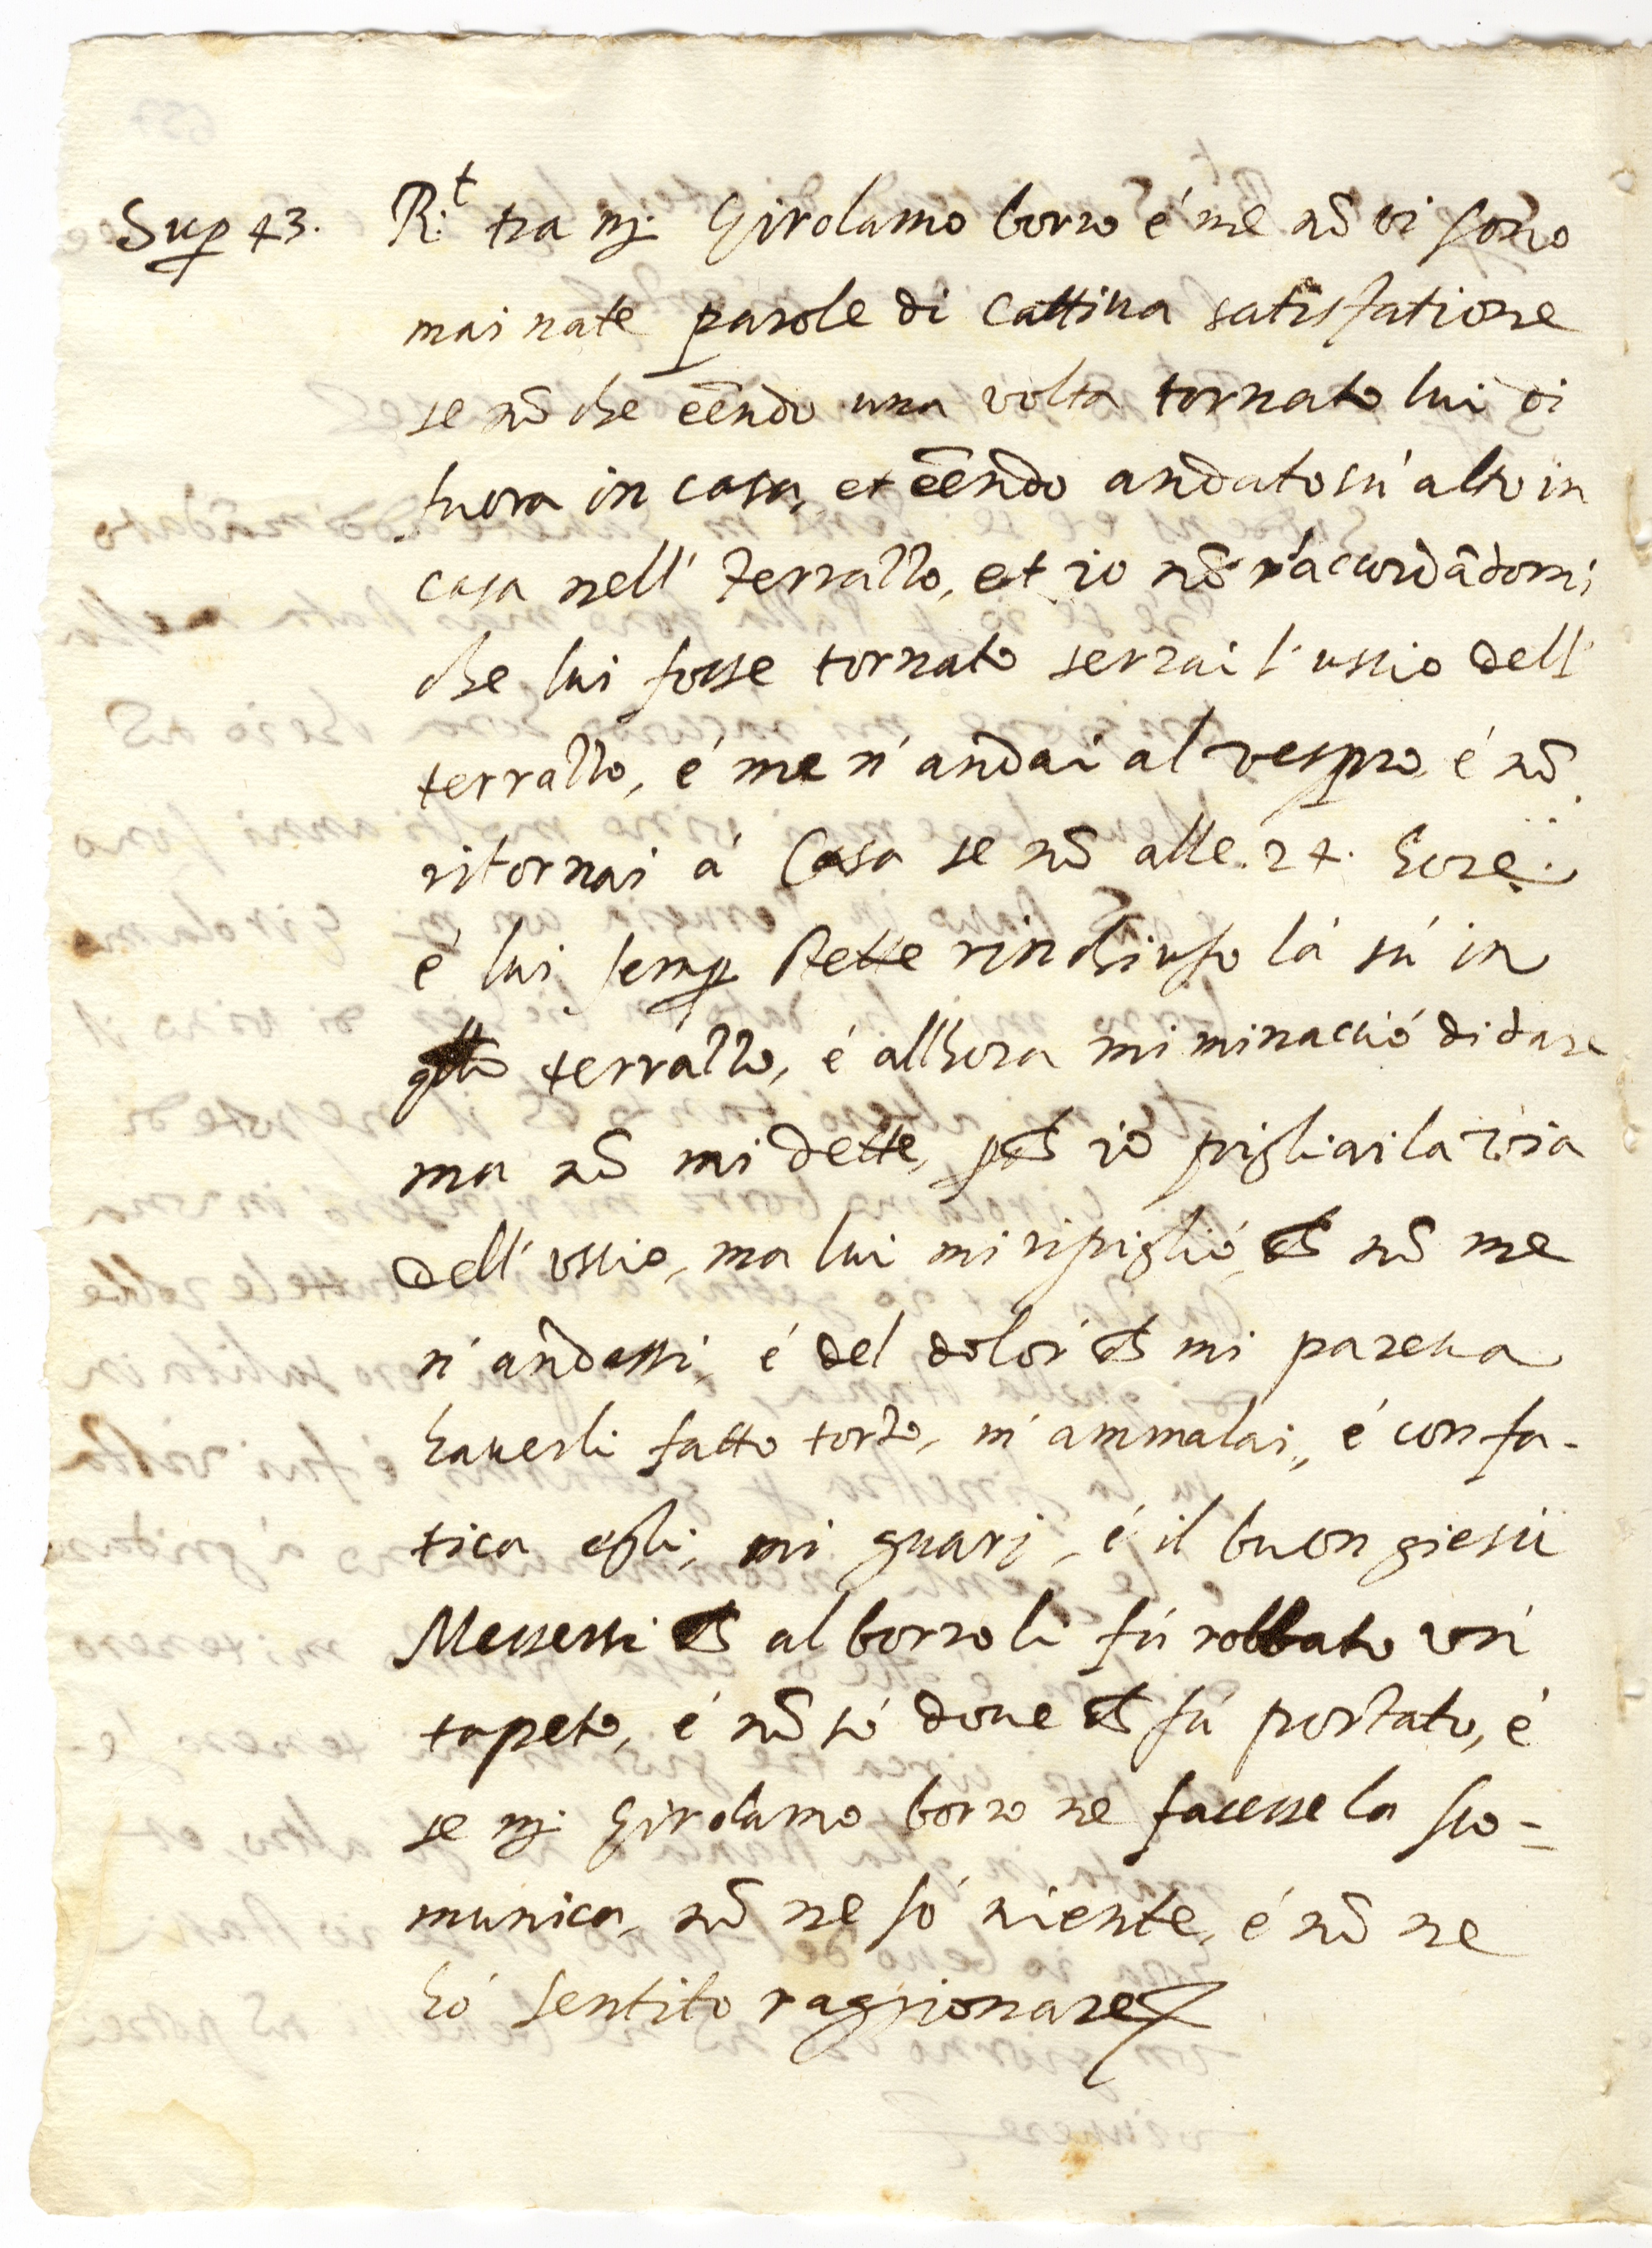 Sup 43. R.t tra mj. Girolamo borro é me nõ vi sono
mai nate parole di cattiua satisfatione
se nõ che eẽndo una volta tornato lui di
fuora in casa, et eẽndo andato sú alto in
casa nell' terrazzo, et io nõ raccordãdomi
che lui fosse tornato serrai l'ussio dell'
terrazzo, é me n'andai al vespro, é nõ
ritornai á Casa se nõ alle .24. hore.
é lui semp stette rinchiuso lá sú in
qllo terrazzo, é all'hora mi minacció di dare
ma nõ mi dette, pch io pigliai la via
dell' vssio, ma lui mi ripiglió, ch nõ me
n'andassi, é del dolor ch mi pareua
hauerli fatto torto, m'ammalai, é con fa-
tica egli, mi guarj, é il buon giesú
Messessi ch al borro li fú robbato vn
tapeto, é nõ só doue ch fú portato, é
se mj. Girolamo borro ne facesse la sco=
munica, nõ ne só niente, é nõ ne
hó sentito raggionare